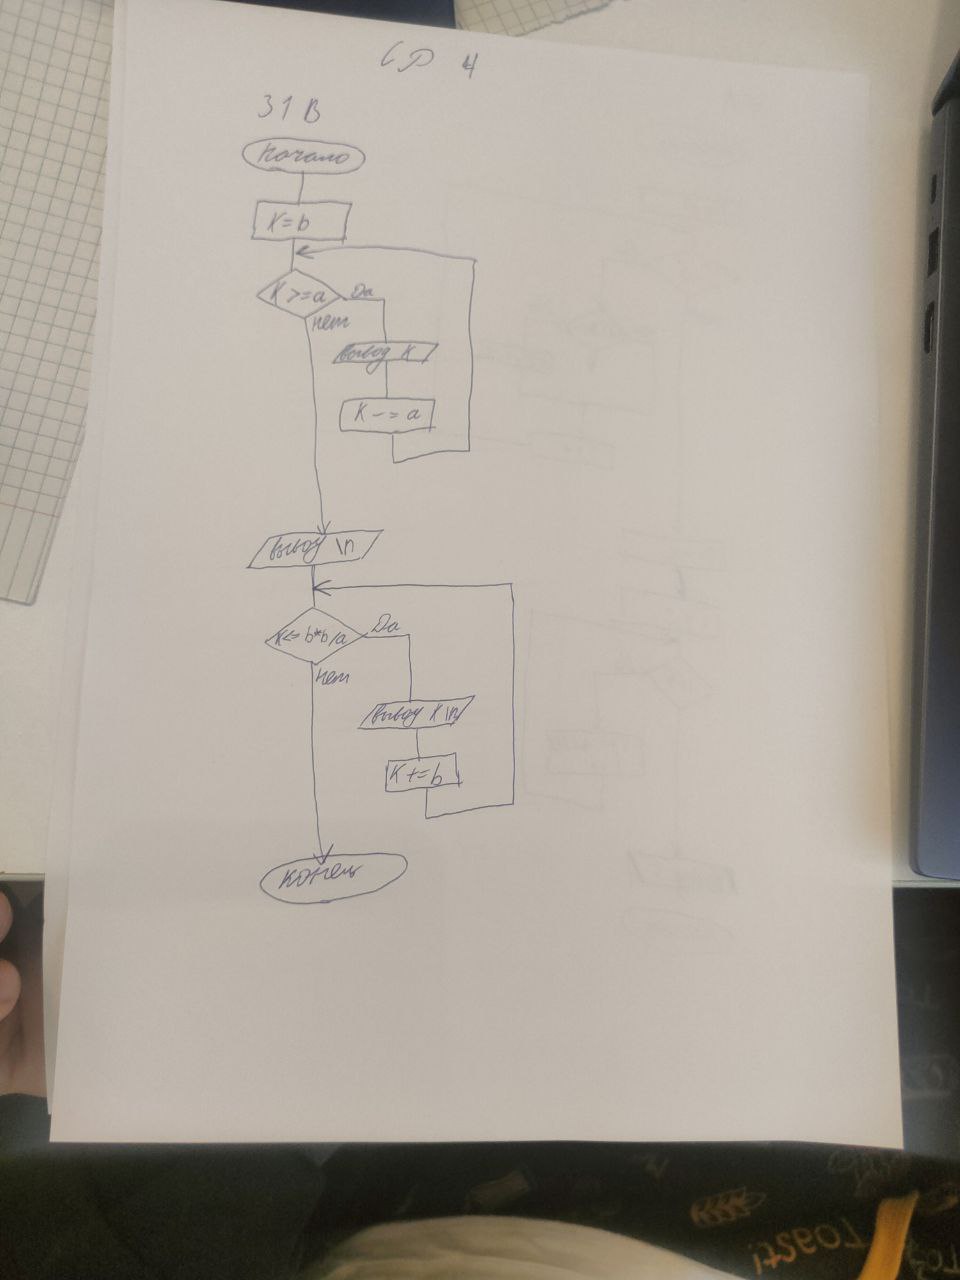 СР 4
31 В
Начало
K=b
K>=a
Da
нет
вывод K
K-=a
вывод \n
K<=b*b/a
Da
нет
вывод K \n
K+=b
конец